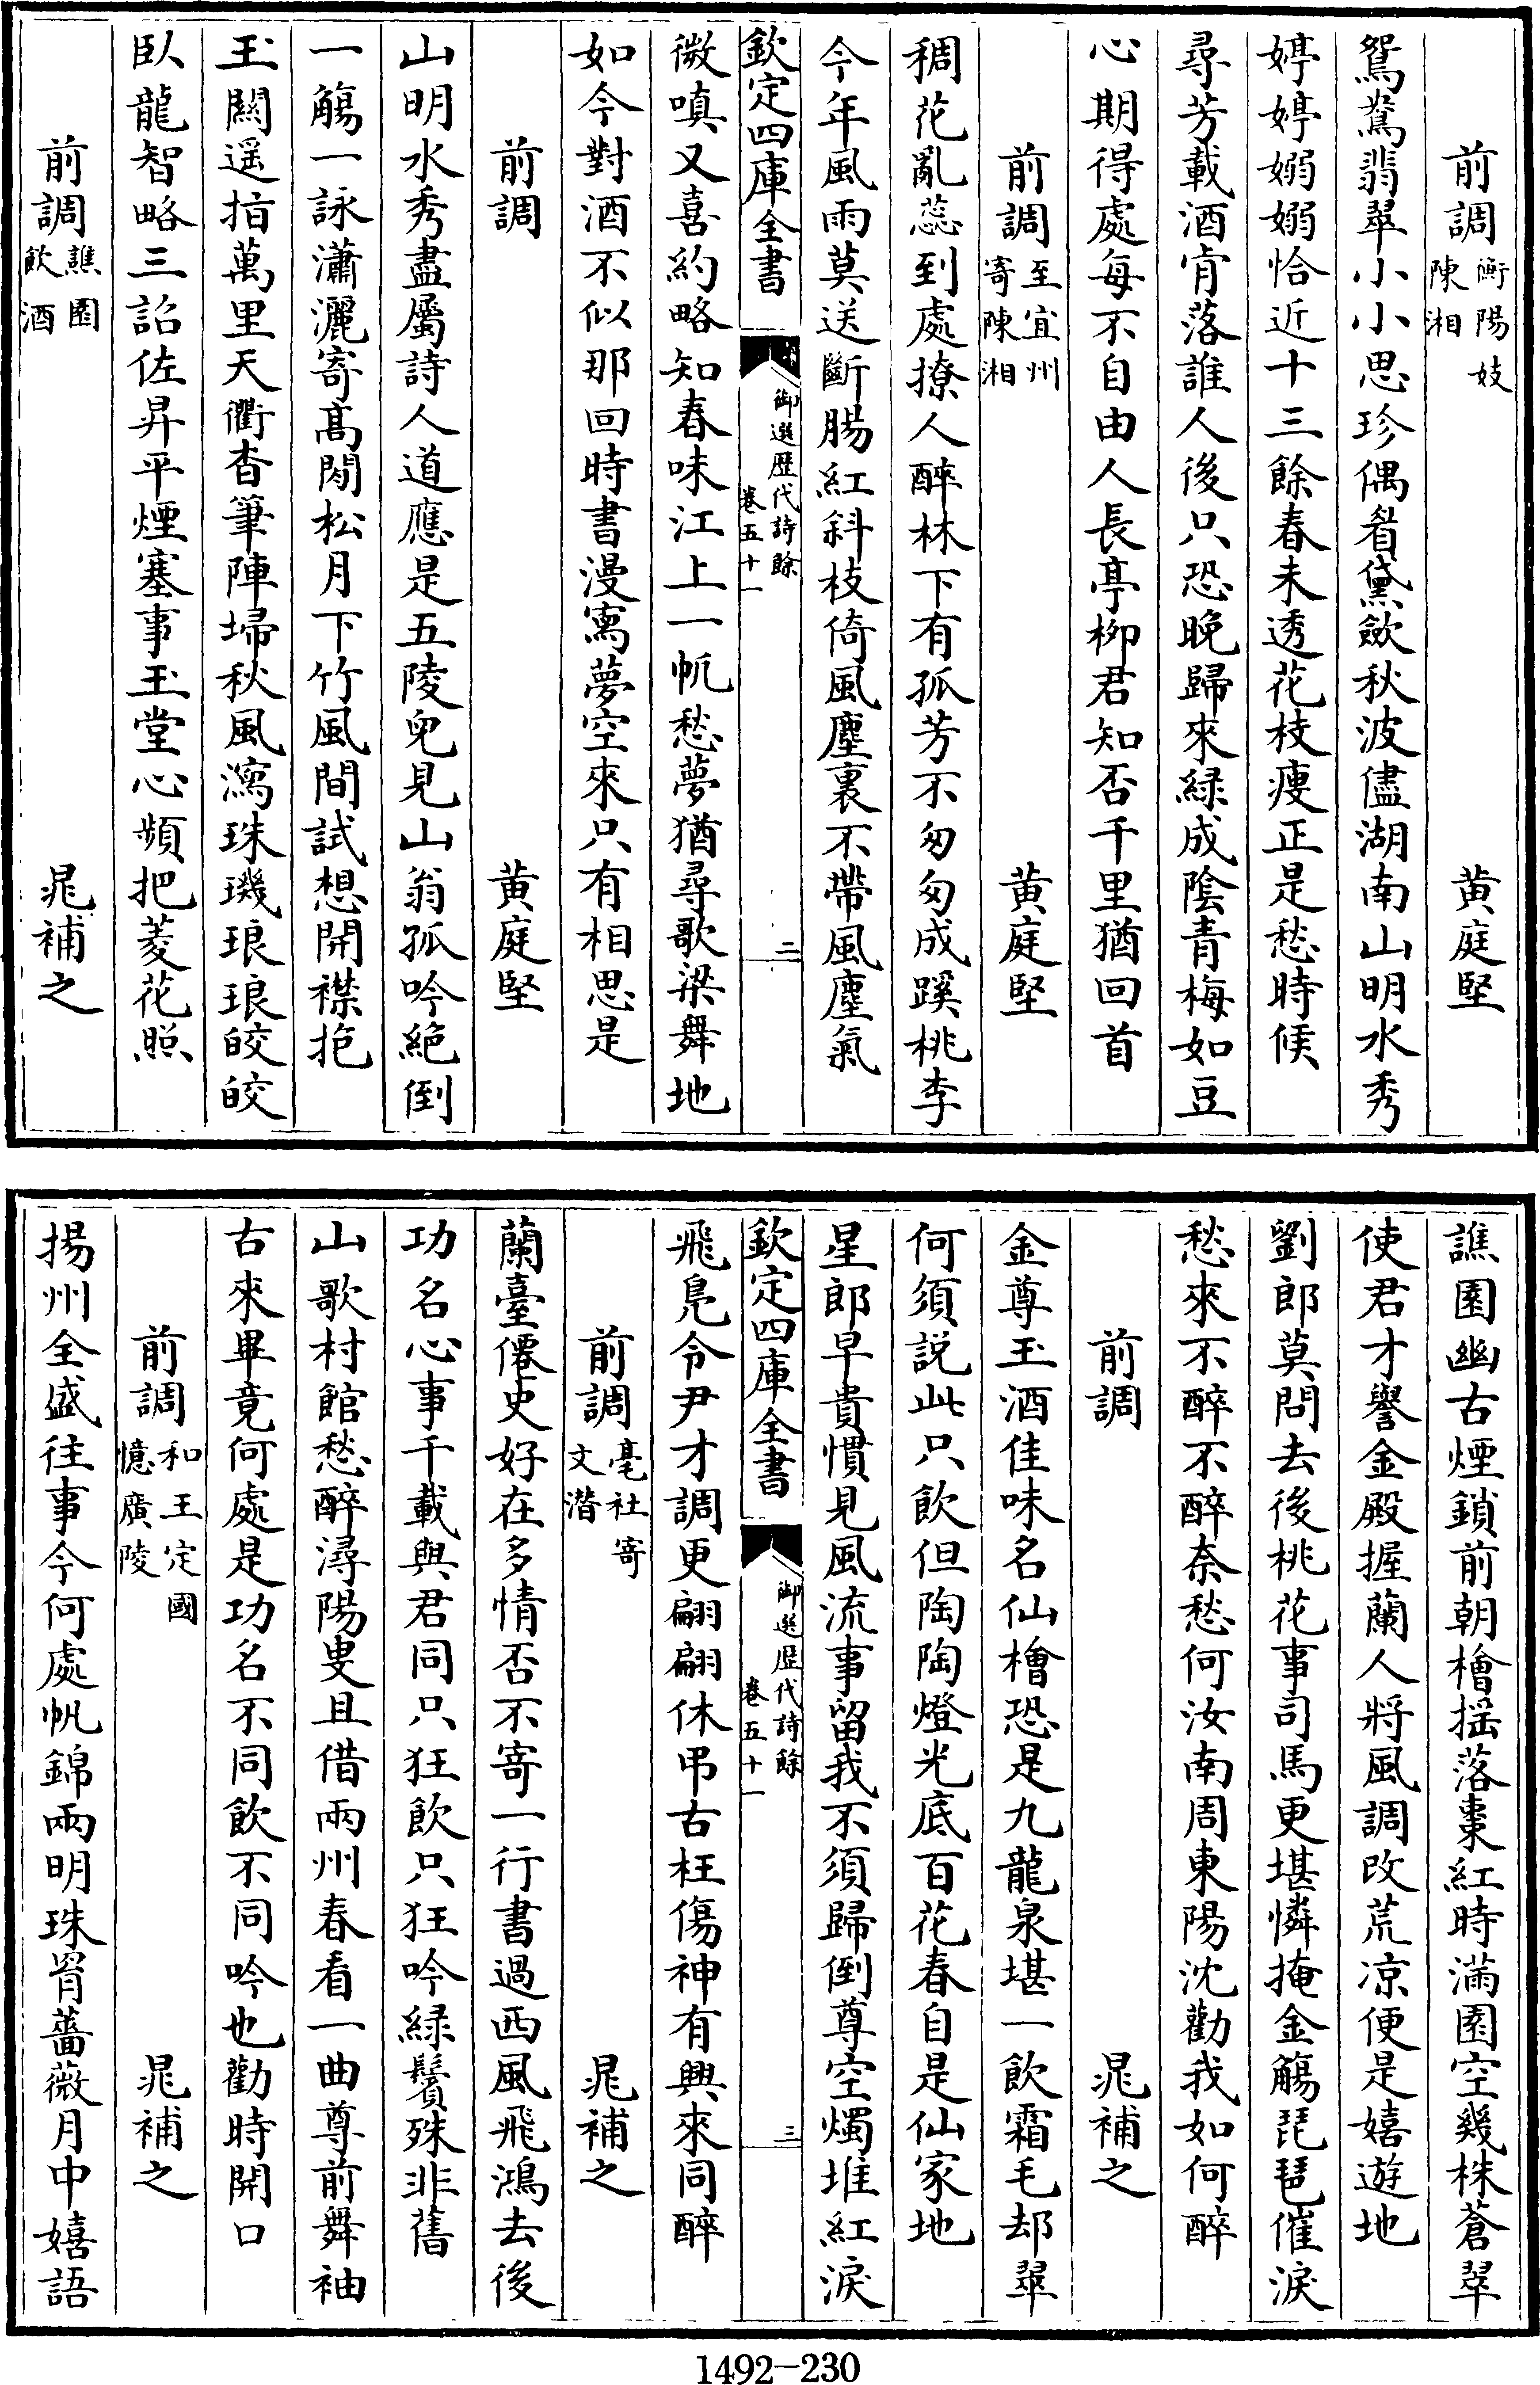 前調衡陽妓陳湘　黄庭堅
鴛鴦翡翠小小思珍偶眉黛斂秋波儘湖南山明水秀
婷婷嫋嫋恰近十三餘春未透花枝瘦正是愁時候
尋芳載酒肯落誰人後只恐晚歸來緑成陰青梅如豆
心期得處每不自由人長亭栁君知否千里猶回首
前調至宜州寄陳湘　黄庭堅
稠花亂蕊到處撩人醉林下有孤芳不匆匆成蹊桃李
今年風雨莫送斷腸紅斜枝倚風塵裏不帶風塵氣
欽定四庫全書　御選歴代詩餘卷五十一　二
微嗔又喜約略知春味江上一帆愁夢猶尋歌梁舞地
如今對酒不似那回時書漫寫夢空來只有相思是
前調　黄庭堅
山明水秀盡屬詩人道應是五陵兒見山翁孤吟絶倒
一觴一詠瀟灑寄髙閒松月下竹風間試想開襟抱
玉闗遥指萬里天衢杳筆陣埽秋風瀉珠璣琅琅皎皎
臥龍智略三詔佐昇平煙塞事玉堂心頻把菱花照
前調譙園飲酒　晁補之
譙園幽古煙鎖前朝檜揺落棗紅時滿園空幾株蒼翠
使君才譽金殿握蘭人將風調改荒凉便是嬉遊地
劉郎莫問去後桃花事司馬更堪憐掩金觴琵琶催淚
愁來不醉不醉奈愁何汝南周東陽沈勸我如何醉
前調　晁補之
金尊玉酒佳味名仙檜恐是九龍泉堪一飲霜毛却翠
何須説此只飲但陶陶燈光底百花春自是仙家地
星郎早貴慣見風流事留我不須歸倒尊空燭堆紅淚
欽定四庫全書　御選歴代詩餘卷五十一　三
飛鳧令尹才調更翩翩休弔古枉傷神有興來同醉
前調亳社寄文濳　晁補之
蘭臺僊史好在多情否不寄一行書過西風飛鴻去後
功名心事千載與君同只狂飲只狂吟緑鬢殊非舊
山歌村館愁醉潯陽叟且借兩州春看一曲尊前舞袖
古來畢竟何處是功名不同飲不同吟也勸時開口
前調和王定國憶廣陵　晁補之
揚州全盛往事今何處帆錦兩明珠罥薔薇月中嬉語
1492-230